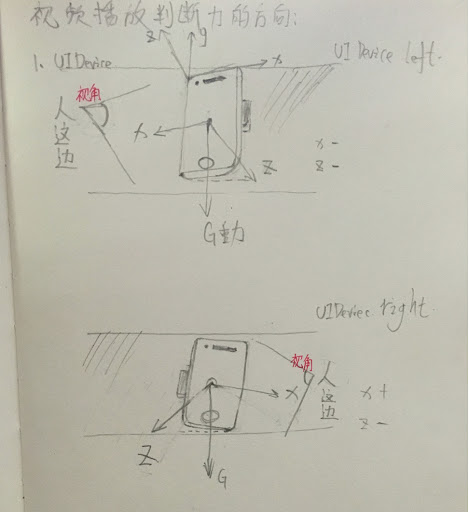 视频播放判断力的方向:
z y x
1. UIDevice
UIDevice left.
视角
人这边
x
z
x -
z -
G動
UIDevice right
视角
人这边
x
z
G
x +
z -